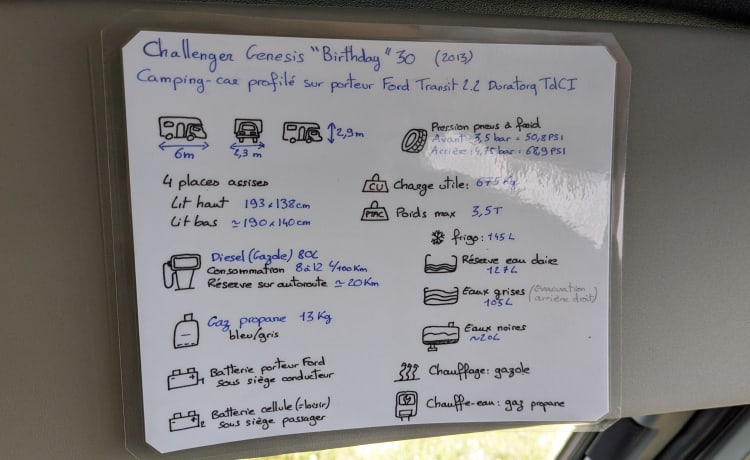 Challenger Genesis "Birthday" 30 (2013)
Camping-car profilé sur porteur Ford Transit 2.2 Duratorq TdCI
6m
2,3 m
2,9m
4 places assises
Lit haut 193 x 138cm
Lit bas ≃ 190 x 140cm
Diesel (Gazole) 80L
Consommation 8 à 12 L/100Km
Réserve sur autoroute ≃ 20Km
Gaz propane 13 Kg
bleu/gris
Batterie porteur Ford
sous siège conducteur
1
Batterie cellule (=loisir)
sous siège passager
2
Pression pneus à froid
Avant: 3,5 bar = 50,8 PSI
Arrière: 4,75 bar = 68,9 PSI
CU Charge utile: 675 Kg
PTAC Poids max 3,5T
frigo: 145 L
Réserve eau claire
127L
Eaux grises (évacuation
105L arrière droit)
Eaux noires
~20L
Chauffage: gazole
Chauffe-eau: gaz propane